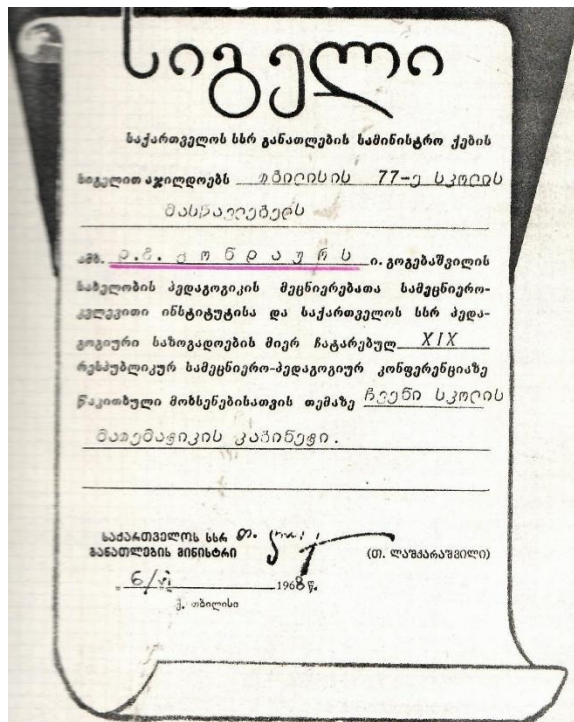 სიგელი
საქართველოს სსრ განათლების სამინისტრო ქების
სიგელით აჯილდოებს თბილისის 77-ე სკოლის
მასწავლებელს
ამხ. ღონდაურს ი. გოგებაშვილის
სახელობის პედაგოგიკის მეცნიერებათა სამეცნიერო-
კვლევითი ინსტიტუტისა და საქართველოს სსრ პედა-
გოგიური საზოგადოების მიერ ჩატარებულ XIX
რესპუბლიკურ სამეცნიერო-პედაგოგიურ კონფერენციაზე
წაკითხული მოხსენებისათვის თემაზე ჩვენი სკოლის
მათემატიკის კაბინეტი.
საქართველოს სსრ
განათლების მინისტრი (თ. ლაშქარაშვილი)
6/VI 1968 წ.
ქ. თბილისი